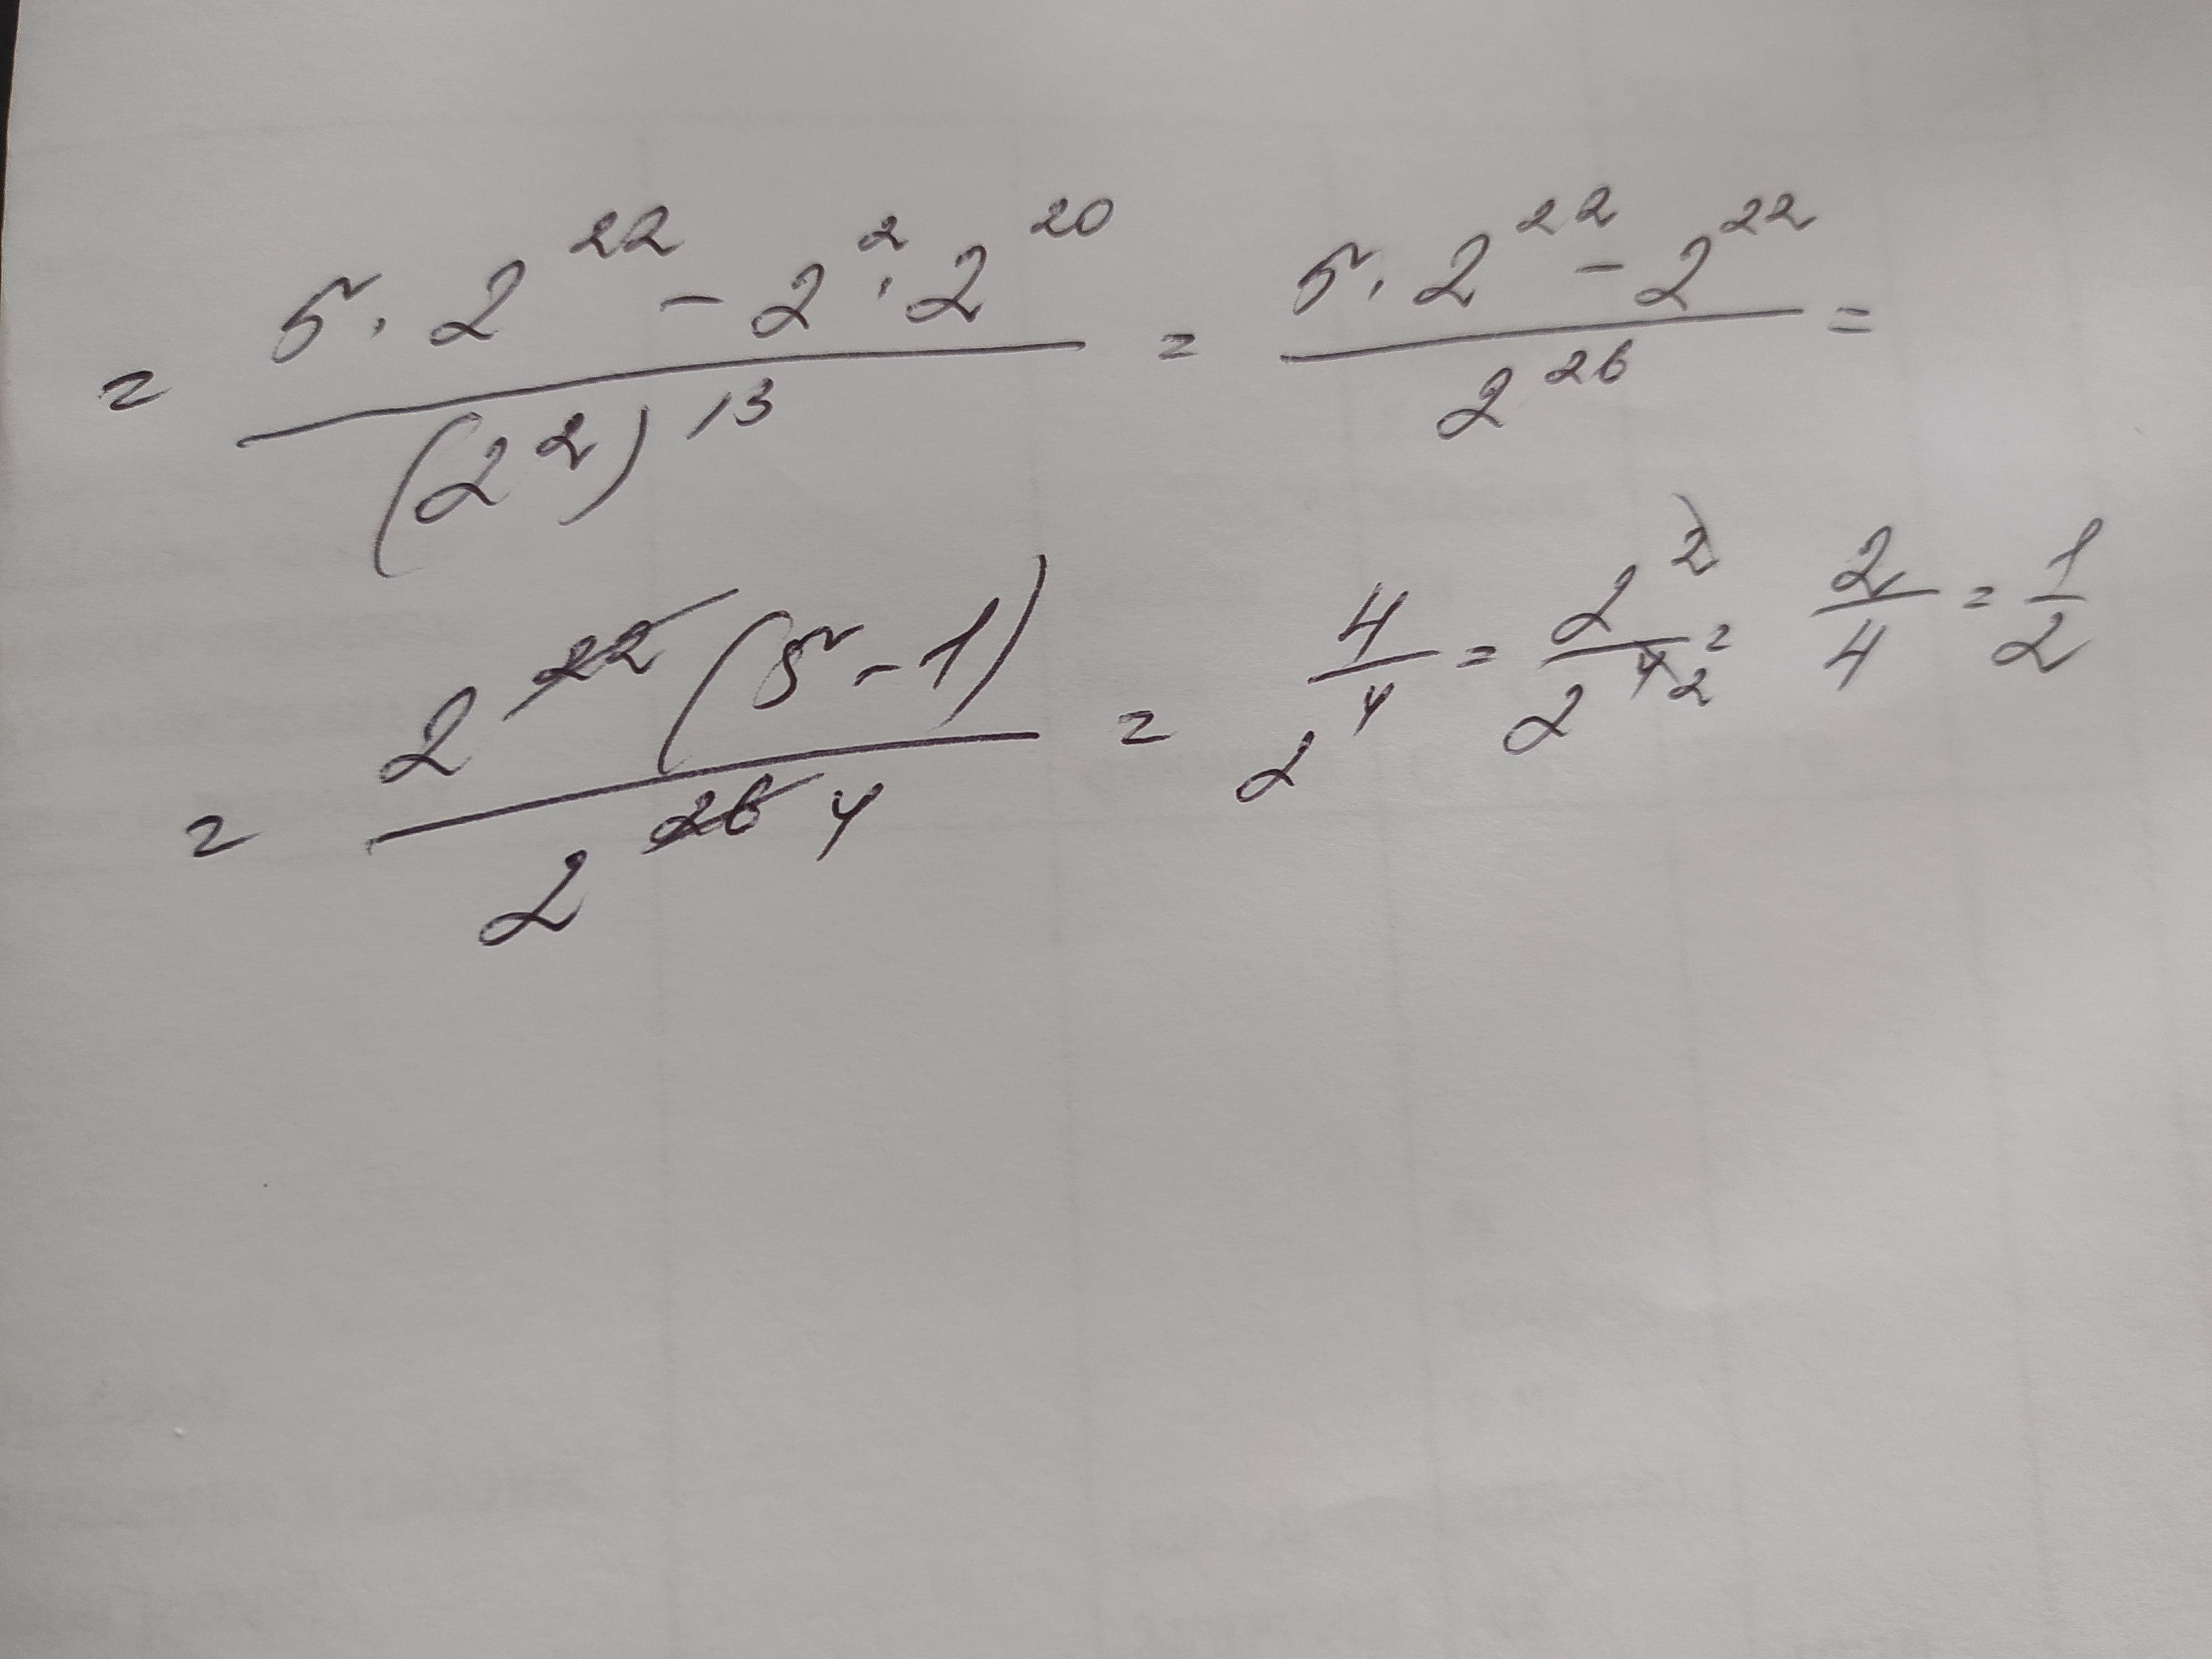 = (5 · 2^22 - 2^2 · 2^20) / (2^2)^13 = (5 · 2^22 - 2^22) / 2^26 =
= 2^22 (5 - 1) / 2^26 4 = 4 / 2^4 = 2^2 / 2^4 2 = 2 / 4 = 1 / 2